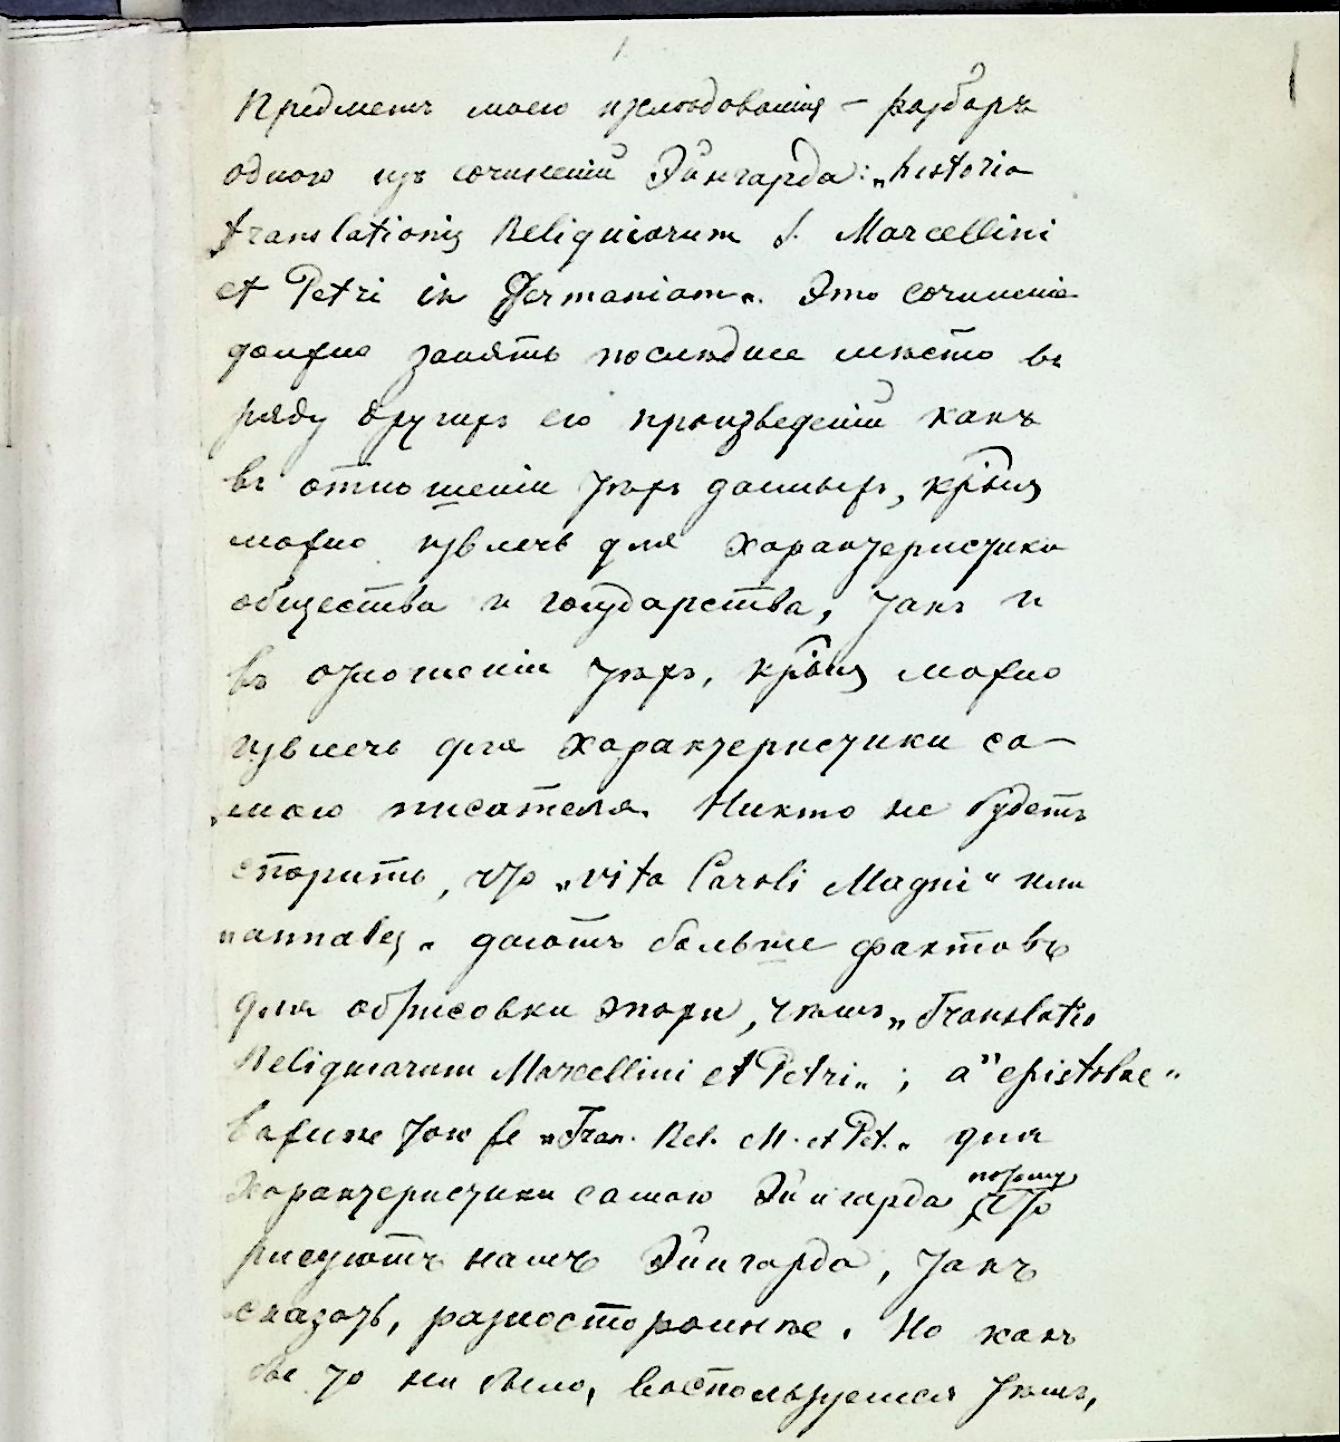 1.
Предметъ моего изслѣдованія – разборъ
одного изъ сочиненій Эйнгарда: „historia
translationis Reliquiarum S. Marcellini
et Petri in Germaniam“. Это сочиненіе
должно занять послѣднее мѣсто въ
ряду другихъ его произведеній какъ
въ отношеніи тѣхъ данныхъ, кр́ыя
можно извлечь для характеристики
общества и государства, такъ и
въ отношеніи тѣхъ, кр́ыя можно
извлечь для характеристики са–
мого писателя. Никто не будетъ
спорить, что „vita Caroli Magni“ или
„annales“ даютъ больше фактовъ
для обрисовки эпохи, чѣмъ „Translatio
Reliquiarum Marcellini et Petri“; а "epistolae"
важнѣе той же „Tran. Rel. M. et Pet.“ для
характеристики самого Эйнгарда, потому что
рисуютъ намъ Эйнгарда, такъ
сказать, разностороннѣе. Но какъ
бы то ни было, воспользуемся тѣмъ,